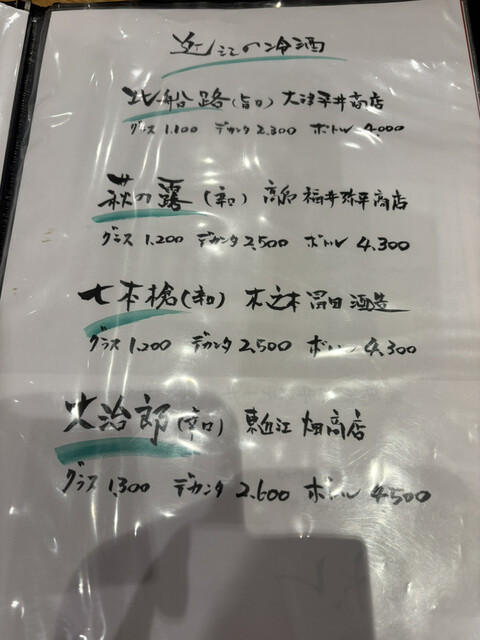 近江の冷酒
北船路(旨口) 大津平井商店
グラス 1.100 デカンタ 2.300 ボトル 4.000
萩の露(辛口) 高島 福井弥平商店
グラス 1.200 デカンタ 2,500 ボトル 4.300
七本槍(辛口) 木之本 冨田酒造
グラス 1.200 デカンタ 2.500 ボトル 4.300
大治郎(辛口) 東近江 畑酒店
グラス 1.300 デカンタ 2.600 ボトル 4500